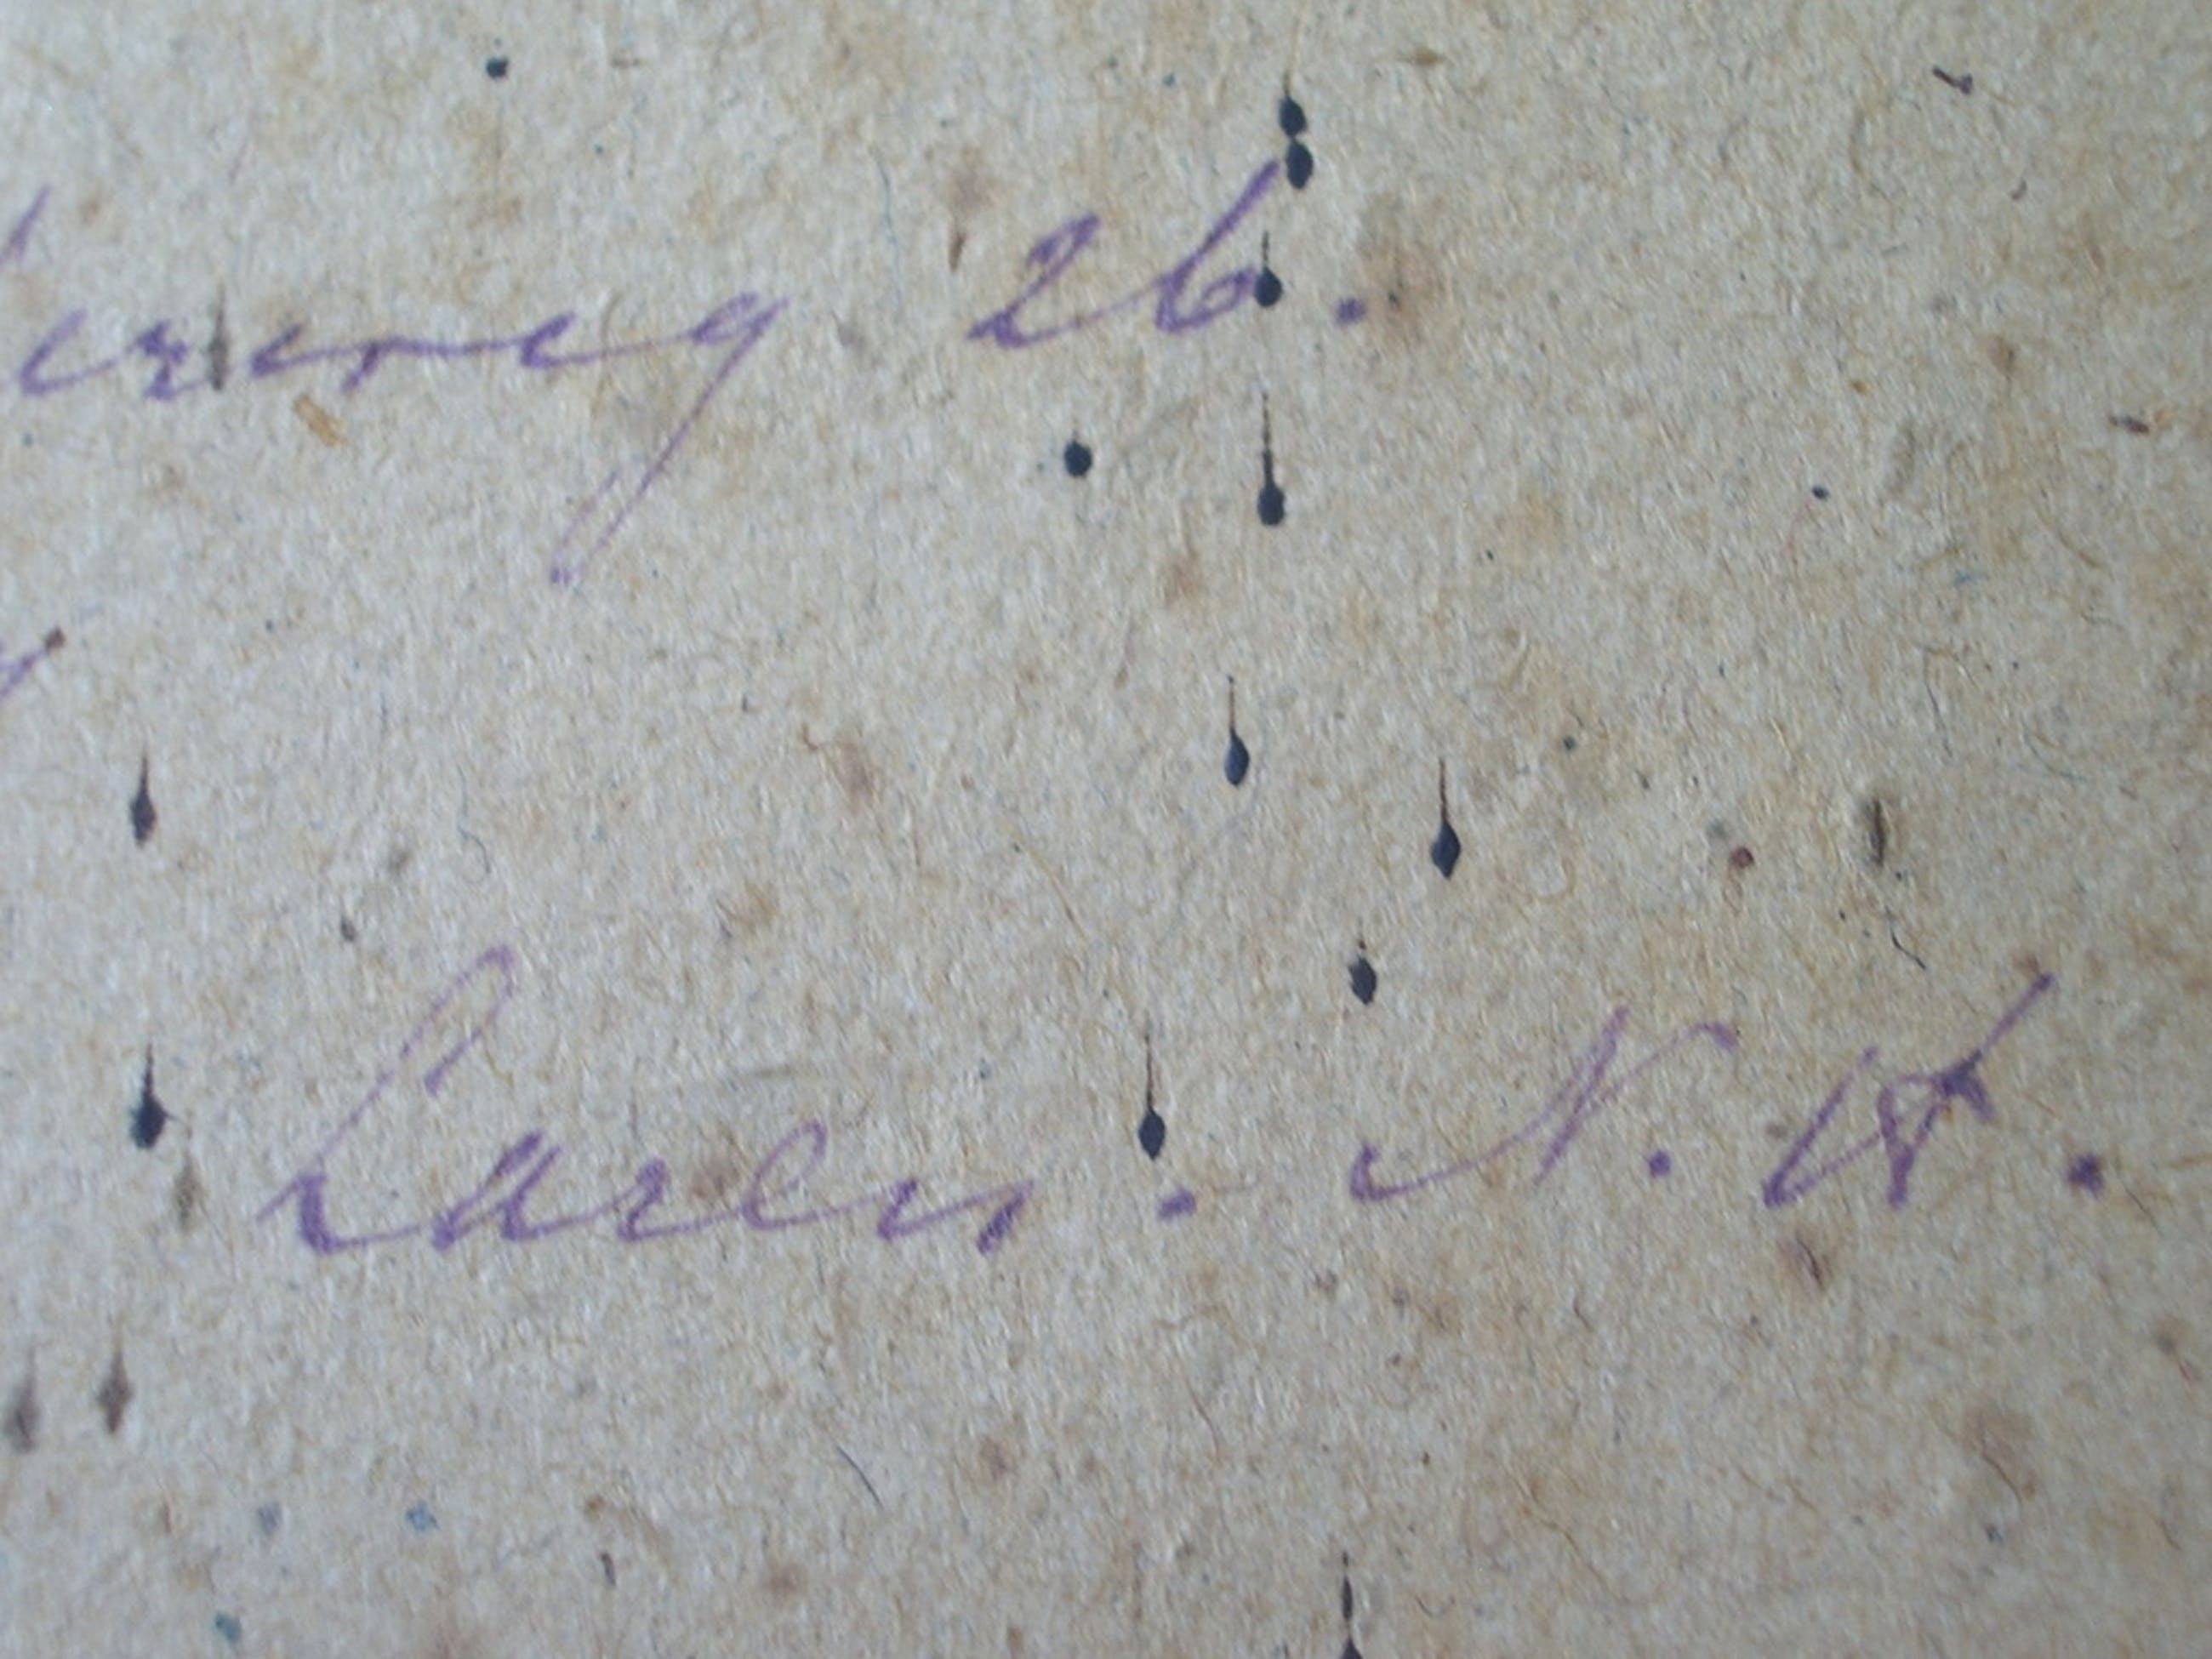 weg 26.
Laren. N. H.